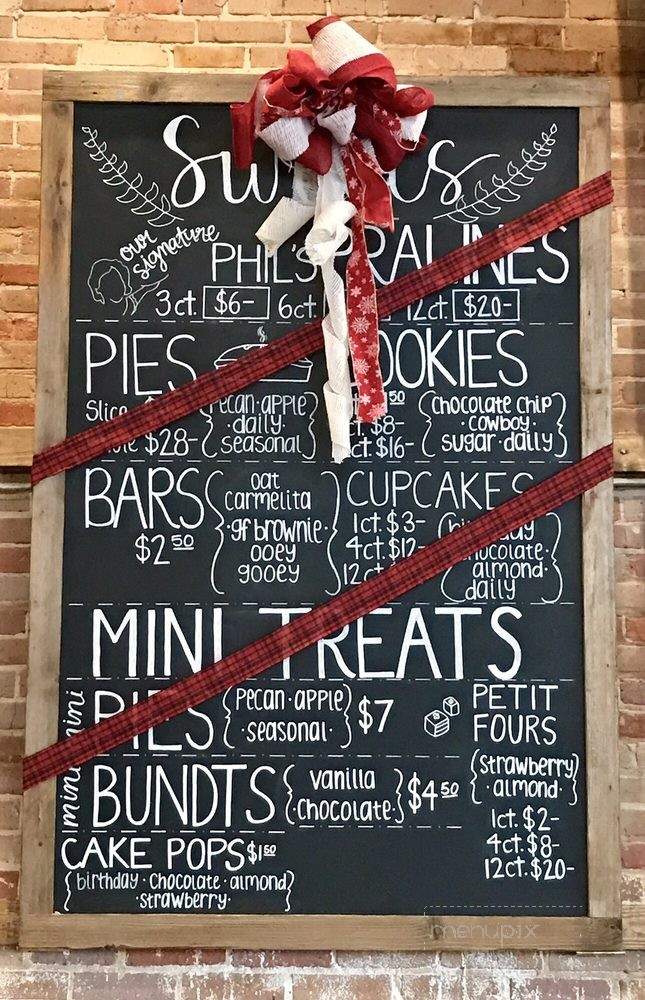 our signature
PHIL'S PRALINES
3 ct. $6- 6ct. 12ct. $20-
PIES
Slice
$28-
pecan · apple
· daily ·
seasonal
COOKIES
50
ct. $8-
ct. $16-
chocolate chip
· cowboy ·
sugar · daily
BARS
$2 50
oat
carmelita
· gf brownie ·
ooey
gooey
CUPCAKES
1ct. $3-
4ct. $12-
12ct.
chocolate ·
almond ·
daily
MINI TREATS
mini
PIES
pecan · apple
· seasonal ·
$7
mini
BUNDTS
vanilla
· chocolate ·
$4 50
CAKE POPS $1 50
birthday · chocolate · almond
· strawberry ·
PETIT
FOURS
strawberry
· almond ·
1ct. $2-
4ct. $8-
12ct. $20-
menupix